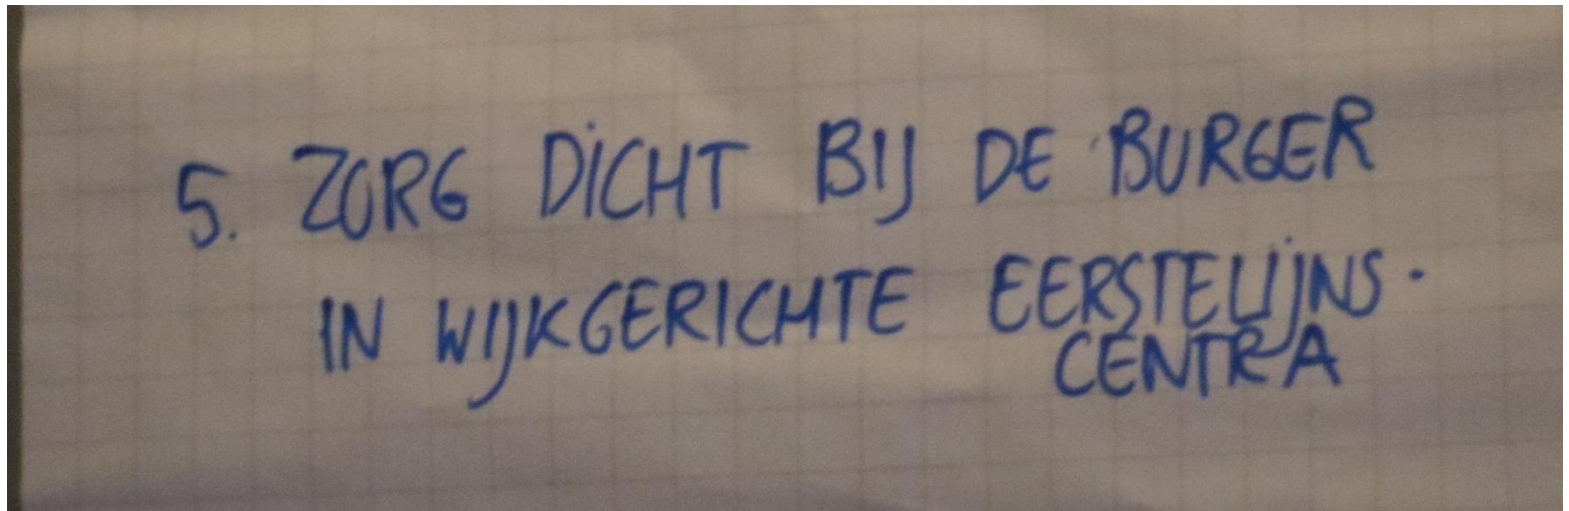 5. ZORG DICHT BIJ DE BURGER
IN WIJKGERICHTE EERSTELIJNS-
CENTRA